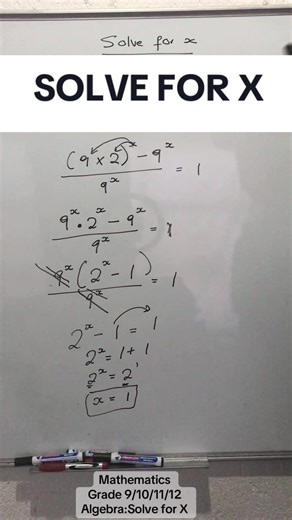 Solve for x
SOLVE FOR X
(9 × 2)^x - 9^x / 9^x = 1
9^x • 2^x - 9^x / 9^x = 1
9^x (2^x - 1) / 9^x = 1
2^x - 1 = 1
2^x = 1 + 1
2^x = 2^1
x = 1
Mathematics
Grade 9/10/11/12
Algebra:Solve for X